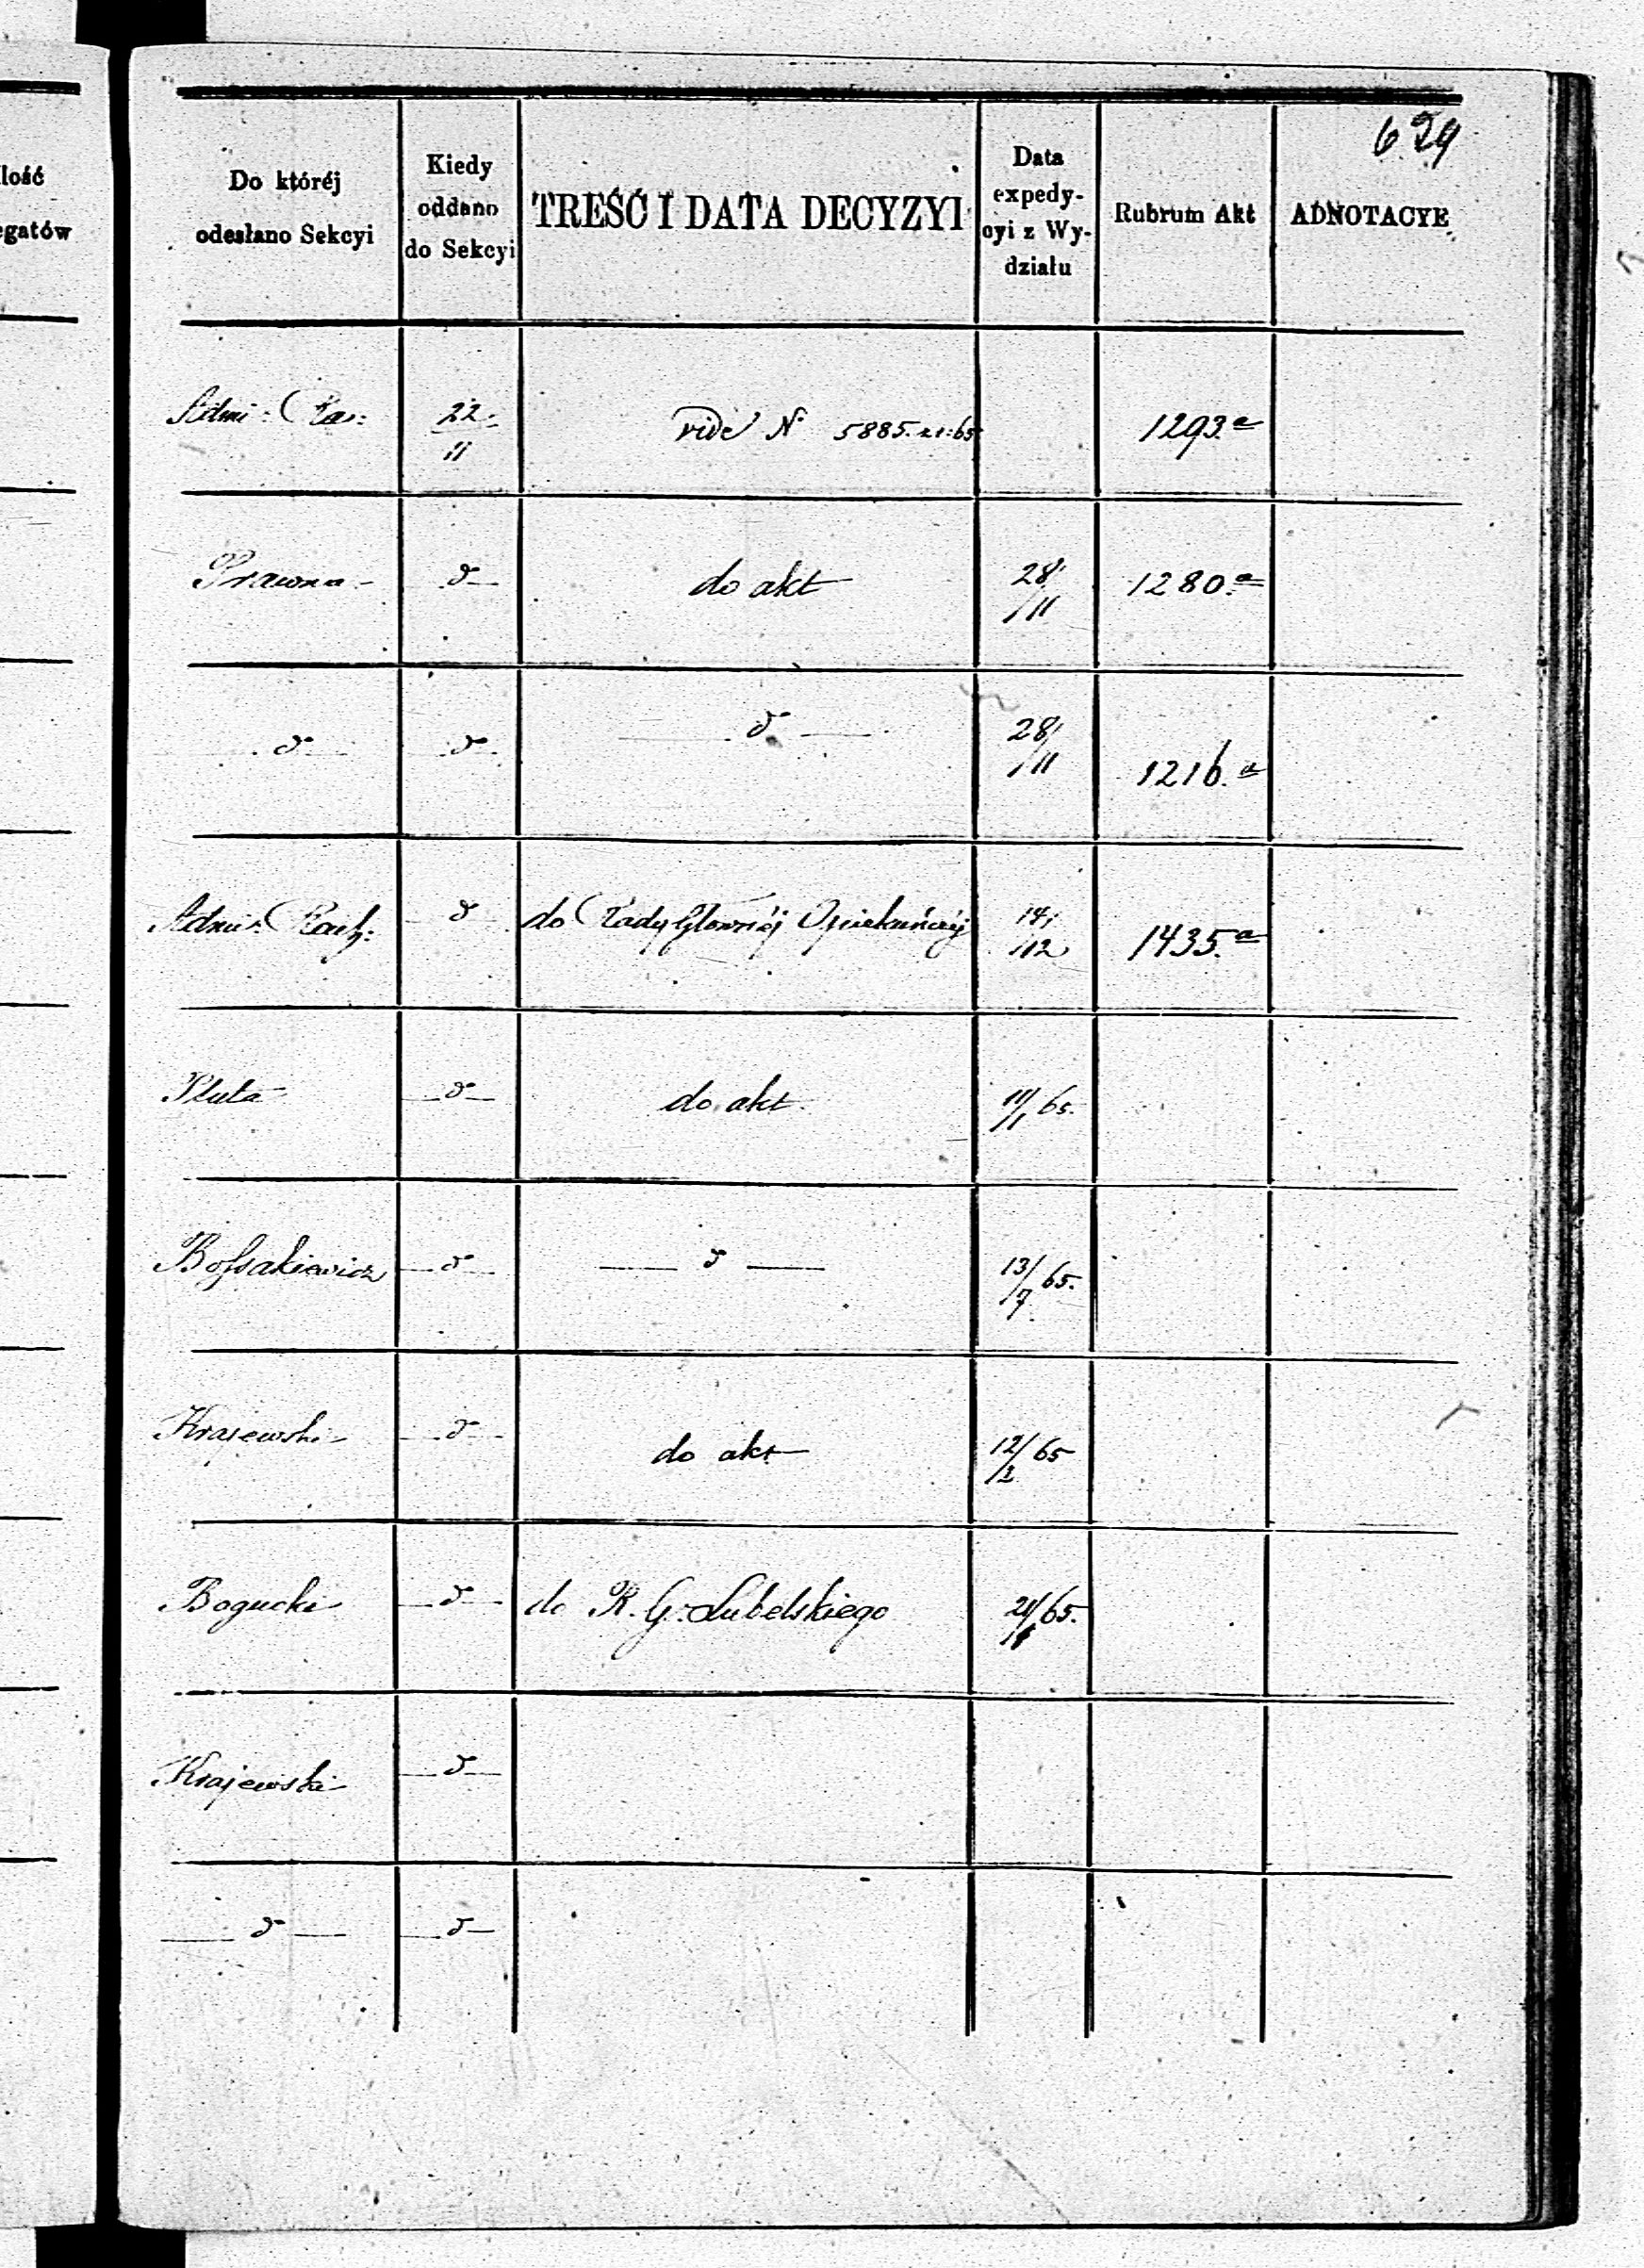 629
lość
egatów
Do któréj
odesłano Sekcyi
Kiedy
oddano
do Sekcyi
TREŚĆ I DATA DECYZYI
Data
expedy-
cyi z Wy-
działu
Rubrum Akt
ADNOTACYE
Admi: Ra:
22
11
vide N 5885. r:65
1293.a
Prawna
do
do akt
28/
/11
1280.a
do
do
do
28/
/11
1216.a
Admi: Rach:
do
do Rady Głownéj Opiekuńczéj
14/
/12
1435.a
Pluta
do
do akt.
11/1 65.
Bossakiewicz
do
do
13/7 65.
Krajewski
do
do akt
12/2 65
Bogucki
do
do R. G: Lubelskiego
65.
Krajewski
do
do
do